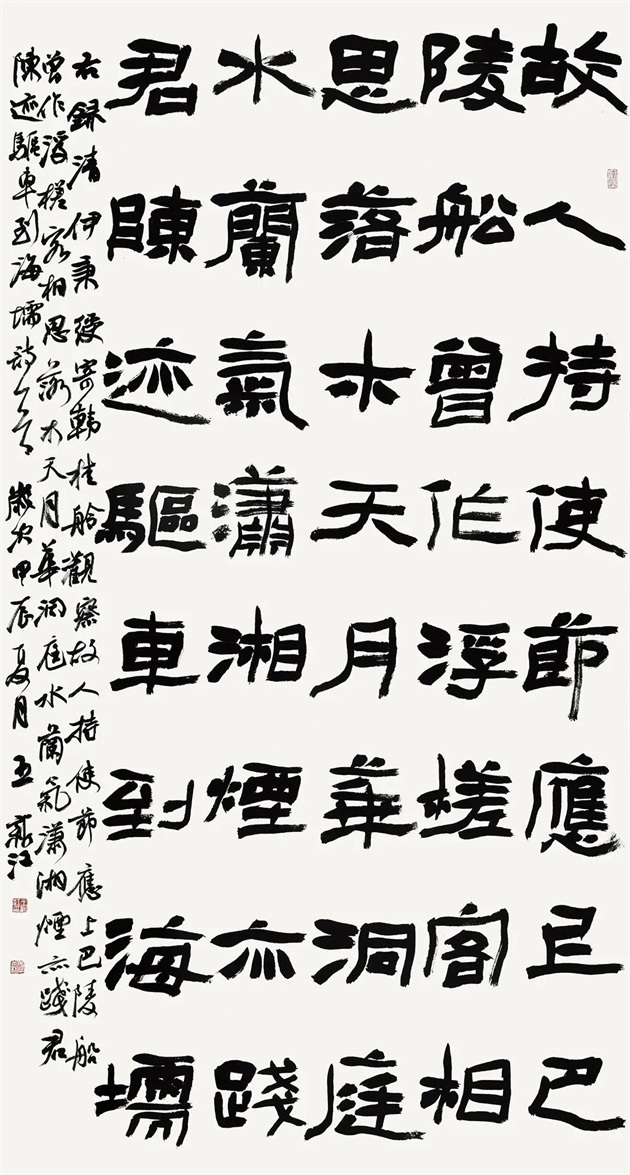 故人持使節應上巴
陵船曾作浮槎客相
思落木天月華洞庭
水蘭氣瀟湘煙亦踐
君陳迹驅車到海壖
右録清伊秉綬寄韓桂舲觀察故人持使節應上巴陵船
曾作浮槎客相思落木天月華洞庭水蘭氣瀟湘煙亦踐君
陳迹驅車到海壖詩一首 歲次甲辰夏月